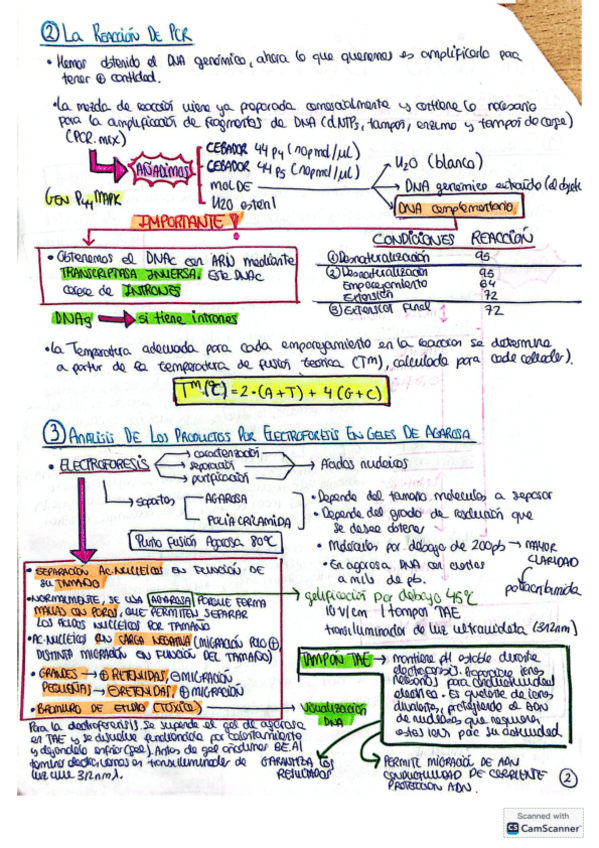 ② La Reacción De PCR
• Hemos obtenido el DNA genómico, ahora lo que queremos es amplificarlo para
tener ⊕ cantidad.
• La mezcla de reacción viene ya preparada comercialmente y contiene lo necesario
para la amplificación de fragmentos de DNA (dNTPs, tampón, enzima y tampos de carga)
(PCR mix)
AÑADIMOS
CEBADOR 44 P4 (10pmol/µL)
CEBADOR 44 P5 (10pmol/µL)
MOLDE
H2O esteril
H2O (blanco)
DNA genómico extraído
DNA complementario
GEN P44 MAPK
IMPORTANTE
• Obtenemos el DNAc con ARN mediante
TRANSCRIPTASA INVERSA. Este DNAc
carece de INTRONES
DNAg → si tiene intrones
CONDICIONES REACCIÓN
① Desnaturalización 95
② Desnaturalización 95
Emparejamiento 64
Extensión 72
③ Extensión final 72
• La Temperatura adecuada para cada emparejamiento en la reacción se determina
a partir de la temperatura de fusión teórica (Tm), calculada para cada cebador).
Tm (ºC) = 2·(A+T) + 4(G+C)
③ Analisis De Los Productos Por Electroforesis En Geles De Agarosa
• ELECTROFORESIS
caracterización
separación
purificación
Ácidos nucleicos
soportes
AGAROSA
POLIACRILAMIDA
Punto Fusión Agarosa 80ºC
• Depende del tamaño moléculas a separar
• Depende del grado de resolución que
se desea obtener
• Moléculas por debajo de 200pb → MAYOR
CLARIDAD
poliacrilamida
• En agarosa, DNA con cientos
a miles de pb.
• SEPARACIÓN AC. NUCLEICOS EN FUNCIÓN DE
SU TAMAÑO
• NORMALMENTE, SE USA AGAROSA PORQUE FORMA
MALLAS CON POROS, QUE PERMITEN SEPARAR
LOS ACIDOS NUCLEICOS POR TAMAÑO
• AC. NUCLEICOS CON CARGA NEGATIVA (MIGRACIÓN POLO ⊕,
DISTINTA MIGRACIÓN EN FUNCIÓN DEL TAMAÑO)
• GRANDES → ⊕ RETENIDAS, ⊖ MIGRACIÓN
PEQUEÑAS → ⊖ RETENIDAS, ⊕ MIGRACIÓN
• BROMURO DE ETIDIO (TÓXICO)
visualización
DNA
gelificación por debajo 45ºC
10 V/cm | tampón TAE
transiluminador de luz ultravioleta (312nm)
TAMPÓN TAE → mantiene pH estable durante
electroforesis. Aporciona iones
necesarios para conductividad
eléctrica. Es quelante de iones
divalentes, protegiendo el ADN
de nucleasas que requieren
estos iones para su actividad.
Para la electroforesis. Se suspende el gel de agarosa
en TAE y se disuelve fundiéndola por calentamiento
y dejándolo enfriar (gel). Antes de gel añadimos BE. Al
terminar electroforesis en transiluminador de
luz uve 312nm).
GARANTIZA LOS
RESULTADOS
PERMITE MIGRACIÓN DE ADN
CONDUCTIVIDAD DE CORRIENTE
PROTECCIÓN ADN.
②
Scanned with
CS CamScanner